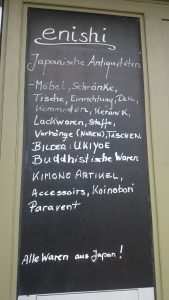 enishi
Japanische Antiquitäten
- Möbel, Schränke,
Tische, Einrichtung, Deko,
Kommoden, Keramik
Lackwaren, Stoffe,
Vorhänge (NOREN), TASCHEN
BILDER: UKIYOE
Buddhistische Waren
KIMONO ARTIKEL,
Accessoirs, Koinobori
Paravent
Alle Waren aus Japan!